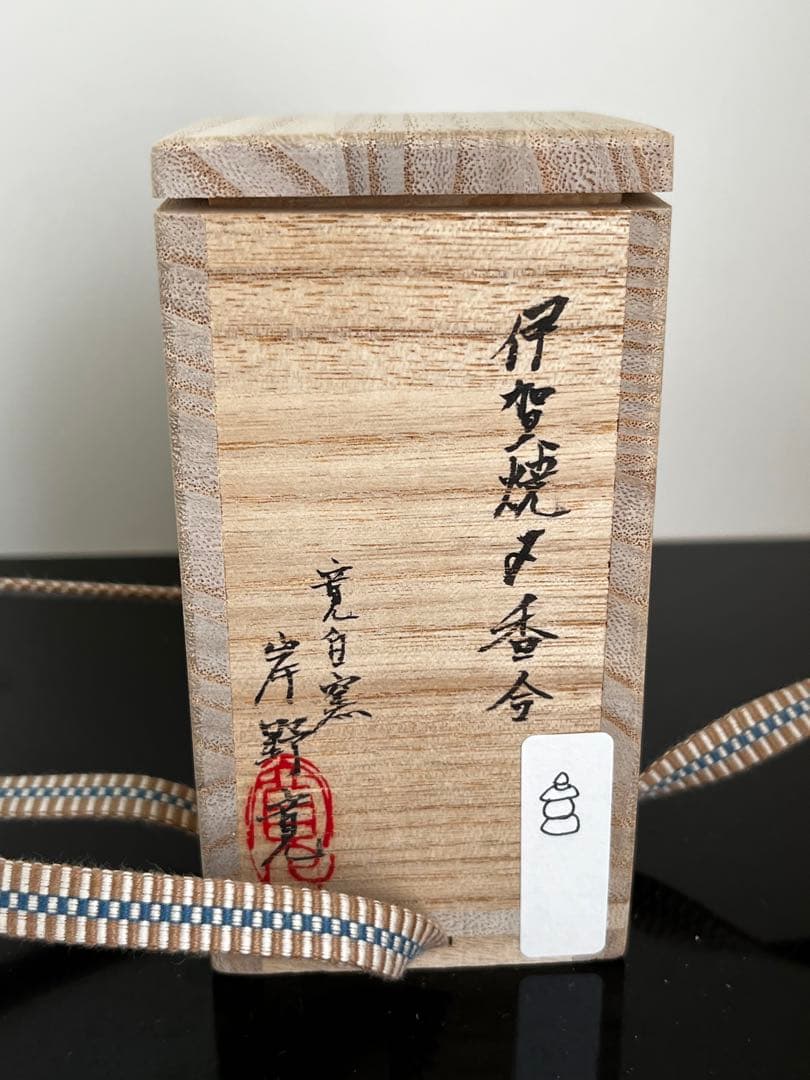 伊賀焼〆香合
寛白窯
岸野寛